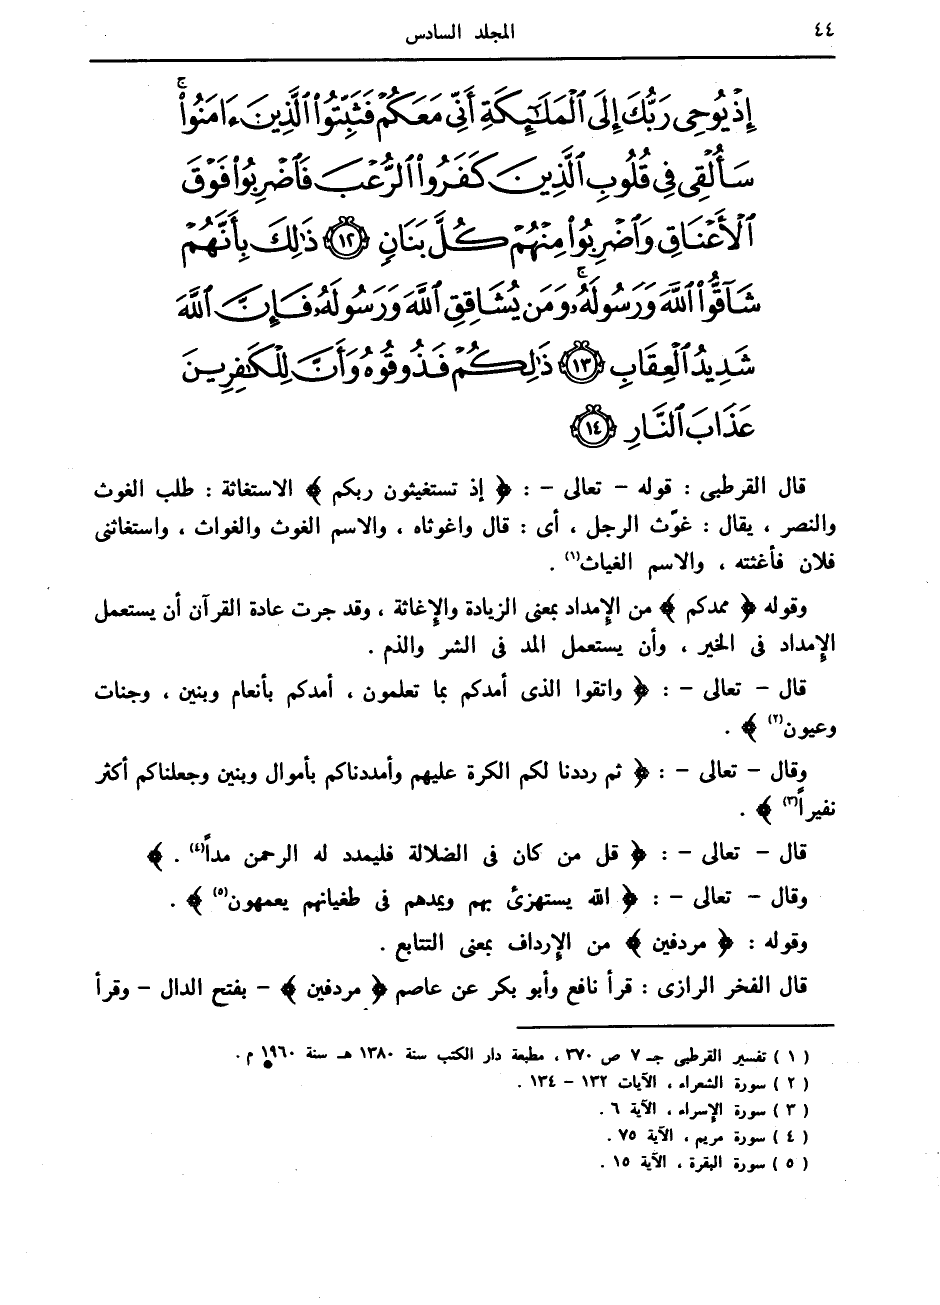 ٤٤ المجلد السادس
إِذْ يُوحِى رَبُّكَ إِلَى ٱلْمَلَٰٓئِكَةِ أَنِّى مَعَكُمْ فَثَبِّتُوا۟ ٱلَّذِينَ ءَامَنُوا۟ ۚ
سَأُلْقِى فِى قُلُوبِ ٱلَّذِينَ كَفَرُوا۟ ٱلرُّعْبَ فَٱضْرِبُوا۟ فَوْقَ
ٱلْأَعْنَاقِ وَٱضْرِبُوا۟ مِنْهُمْ كُلَّ بَنَانٍ ١٢ ذَٰلِكَ بِأَنَّهُمْ
شَآقُّوا۟ ٱللَّهَ وَرَسُولَهُۥ ۚ وَمَن يُشَاقِقِ ٱللَّهَ وَرَسُولَهُۥ فَإِنَّ ٱللَّهَ
شَدِيدُ ٱلْعِقَابِ ١٣ ذَٰلِكُمْ فَذُوقُوهُ وَأَنَّ لِلْكَٰفِرِينَ
عَذَابَ ٱلنَّارِ ١٤
قال القرطبى : قوله – تعالى – : ﴿ إذ تستغيثون ربكم ﴾ الاستغاثة : طلب الغوث
والنصر ، يقال : غوّث الرجل ، أى : قال واغوثاه ، والاسم الغوث والغواث ، واستغاثنى
فلان فأغثته ، والاسم الغياث(١) .
وقوله ﴿ ممدكم ﴾ من الإمداد بمعنى الزيادة والإغاثة ، وقد جرت عادة القرآن أن يستعمل
الإمداد فى الخير ، وأن يستعمل المد فى الشر والذم .
قال – تعالى – : ﴿ واتقوا الذى أمدكم بما تعلمون ، أمدكم بأنعام وبنين ، وجنات
وعيون(٢) ﴾ .
وقال – تعالى – : ﴿ ثم رددنا لكم الكرة عليهم وأمددناكم بأموال وبنين وجعلناكم أكثر
نفيراً(٣) ﴾ .
قال – تعالى – : ﴿ قل من كان فى الضلالة فليمدد له الرحمن مداً(٤) . ﴾
وقال – تعالى – : ﴿ الله يستهزئ بهم ويمدهم فى طغيانهم يعمهون(٥) ﴾ .
وقوله : ﴿ مردفين ﴾ من الإرداف بمعنى التتابع .
قال الفخر الرازى : قرأ نافع وأبو بكر عن عاصم ﴿ مردفين ﴾ – بفتح الدال – وقرأ
( ١ ) تفسير القرطبى جـ ٧ ص ٣٧٠ ، مطبعة دار الكتب سنة ١٣٨٠ هـ سنة ١٩٦٠ م .
( ٢ ) سورة الشعراء ، الآيات ١٣٢ – ١٣٤ .
( ٣ ) سورة الإسراء ، الآية ٦ .
( ٤ ) سورة مريم ، الآية ٧٥ .
( ٥ ) سورة البقرة ، الآية ١٥ .